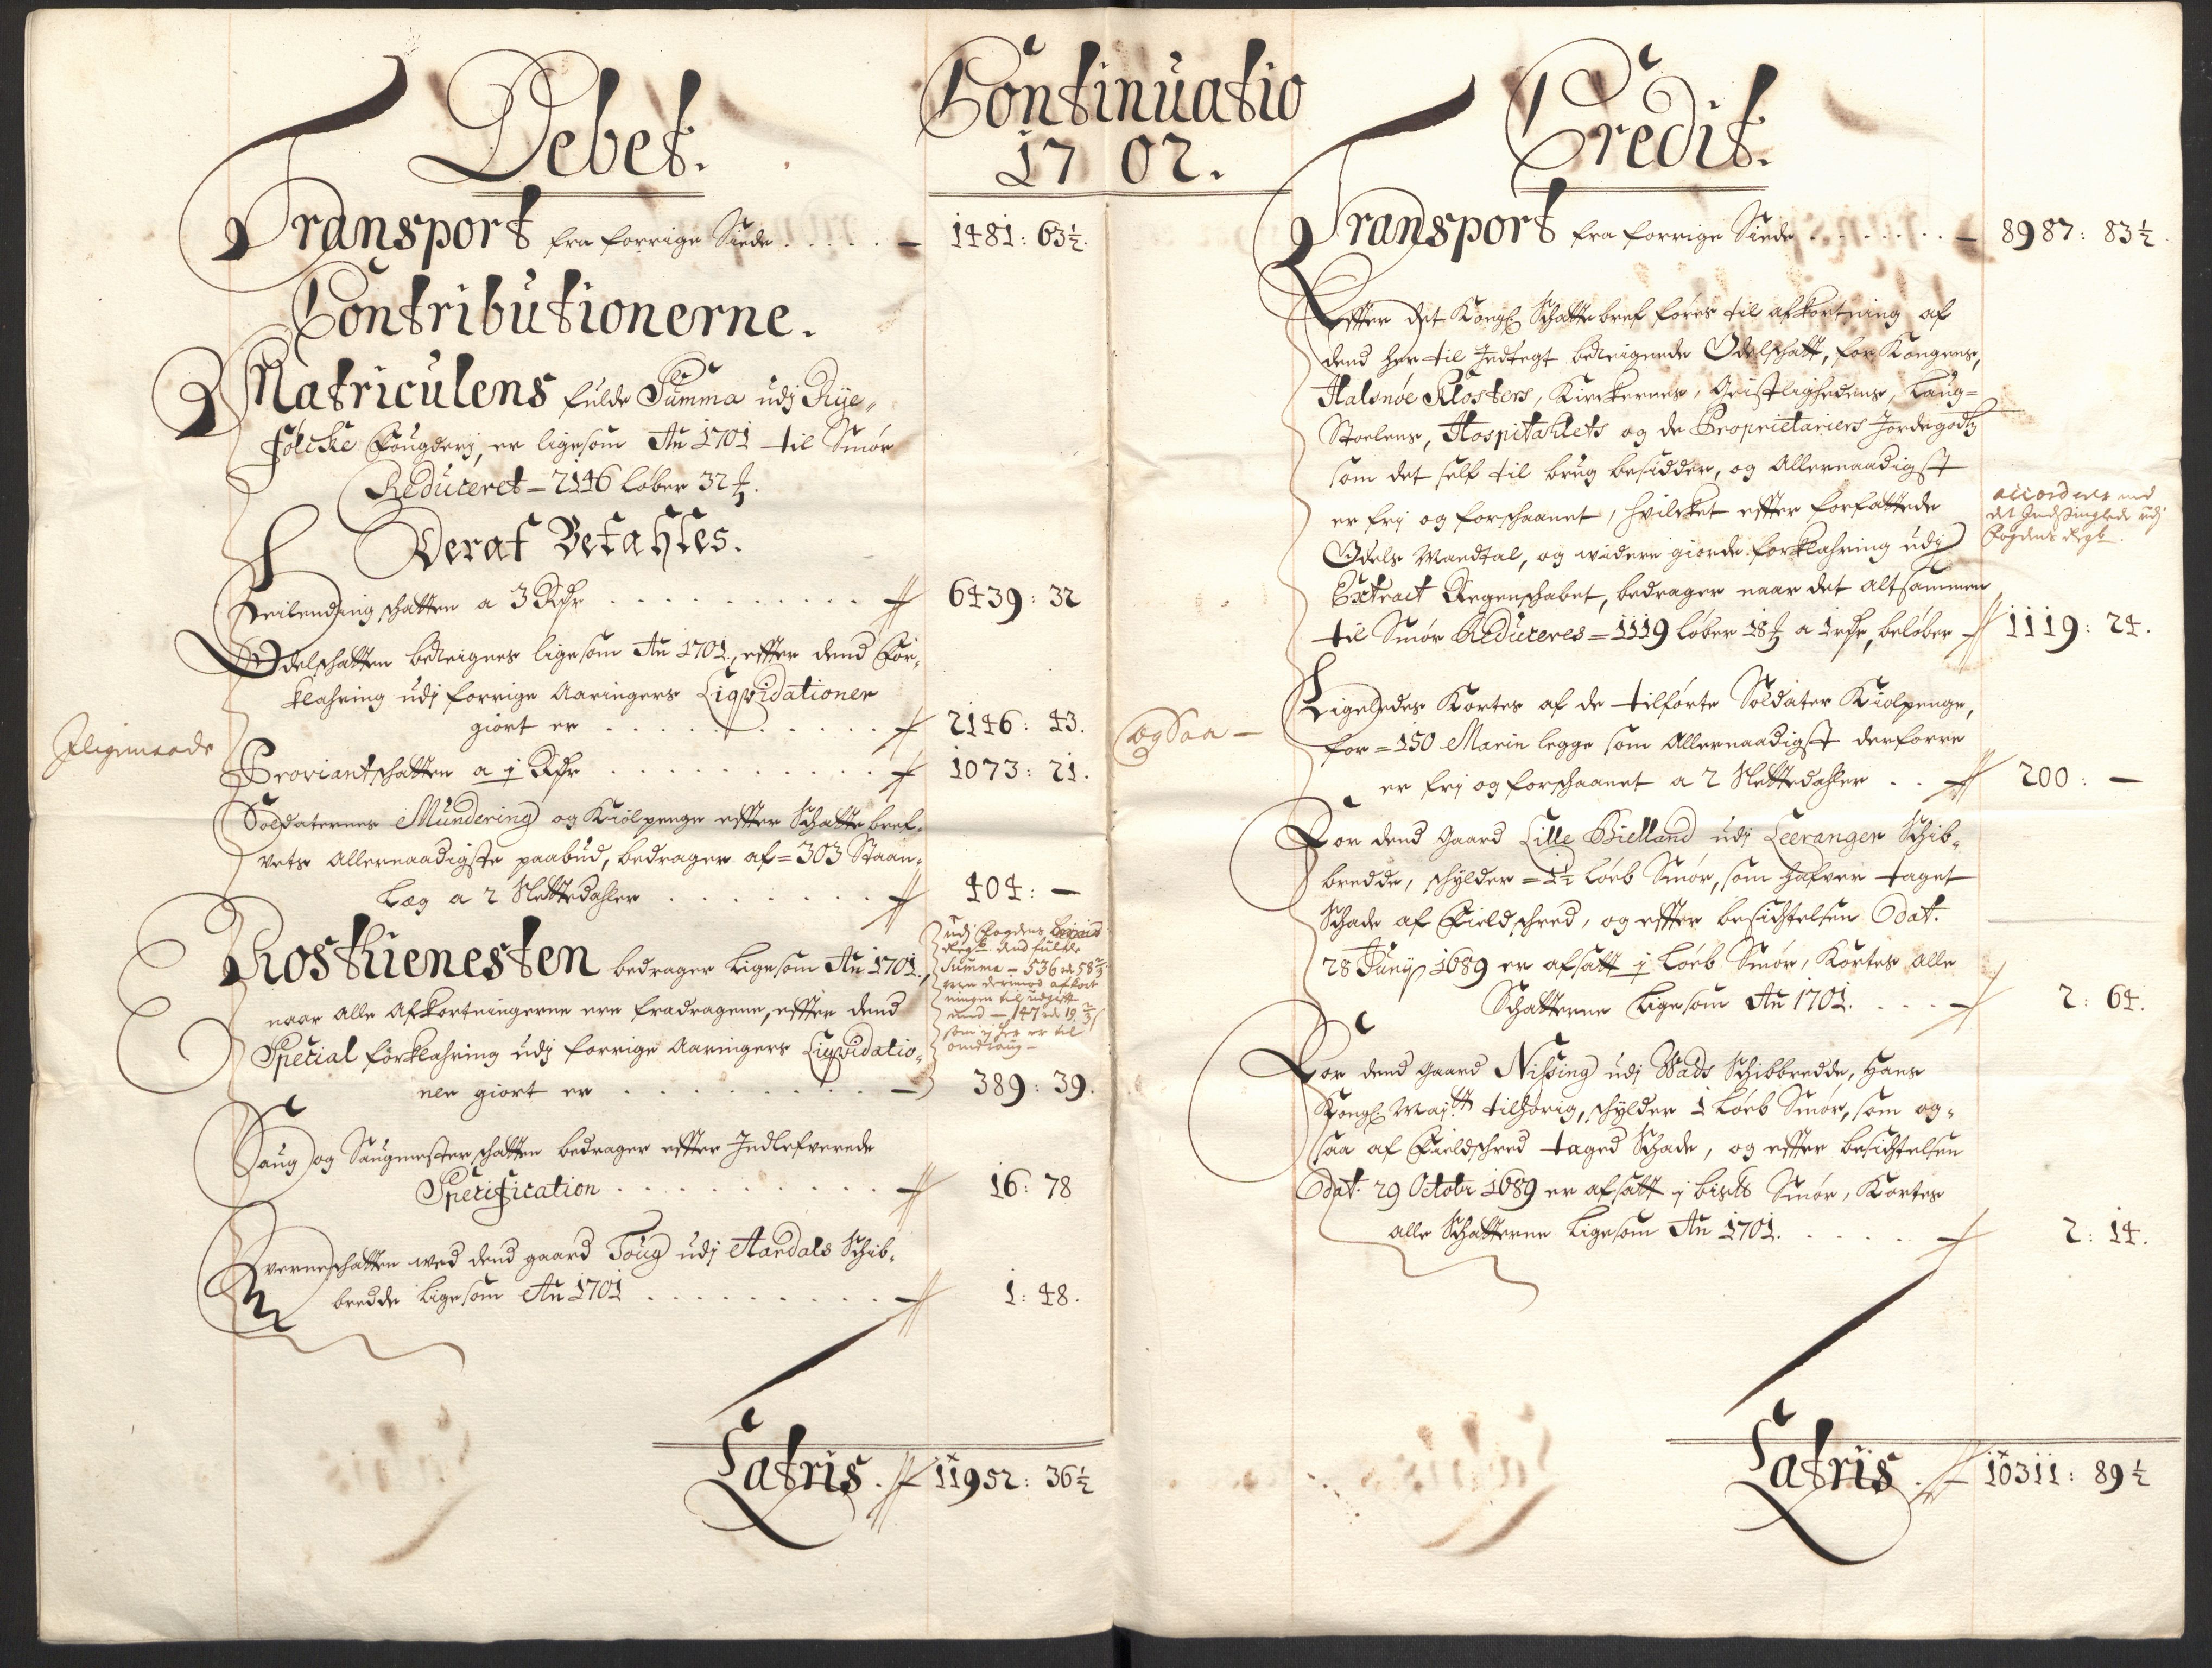 Debet.
Continuatio
1702.
Transport fra forrige Siide . . . . . — 1481: 63½.
Contributionerne.
Matriculens fulde Summa udj Rye,,
fölcke fougderj, er ligesom Aō 1701 til Smör
Reduceret = 2146 löber 32 ℔.
Deraf Betahles.
Leilendingschatten a 3 Rdr . . . . . . . . . 6439: 32
Odelschatten beteignes ligesom Aō 1701, effter dend For,
klahring udj forrige Aaringers Liqvidationer
giort er . . . . . . . . . 2146: 43.
Iligemaade
Proviantschatten a j Rdr . . . . . . . . . 1073: 21.
Soldaternes Mundering og Kiolpenge effter Schattebref,
vets Allernaadigste paabud, bedrager af = 303 Staan,
Læg a 2 Slettedahler . . . . . . . 404: —
Rosttienesten bedrager Ligesom Aō 1701,
naar alle Afkortningerne ere fradragene, effter dend
Special forklahring udj forrige Aaringers Liqvidatio,
ner giort er . . . . . . . . . — 389: 39.
udj fogdens
Summa — 536 rd 58⅔
som ej her er til
Saug og Saugmesterschatten bedrager effter Indlefverede
Specification . . . . . . . . . 16: 78
Qverneschatten wed dend gaard Toug udj Aardals Schib,
bredde ligesom Aō 1701 . . . . . . . . . 1: 48.
Latris. 11952: 36½
Credit.
Transport fra forrige Siide . . . . . . . — 8987: 83½.
Effter det Kongl Schattebref föres til afkortning af
dend her til Indtegt beteignede Odelschatt, for Kongens,
Halsnöe Klosters, Kierkernes, Geistlighedens, Laug=
Stoelens, Hospitahlets og de Proprietariers Jordegodtz
som det self til brug besidder, og Allernaadigst
er frj og forschaanet, hvilcket effter forfattede
Odels Mandtal, og widere giorde forklahring udj
Extract Regenschabet, bedrager naar det altsammen
til Smör Reduceres = 1119 löber 18 ℔ a 1 rdr, belöber 1119: 24.
det
fogdens Regsk.
Ligeledes Kortes af de tilförte Soldater Kiolpenge,
for = 150 Marin legge som Allernaadigst derforre
er frj og forschaanet a 2 Slettedahler . . 200: —
ogsaa —
For dend Gaard Lille Bielland udj Leeranger Schib,
bredde, schylder = 1½ Löeb Smör, som hafver taget
Schade af Fieldschred, og effter besichtelsen dat.
28 Junij 1689 er afsatt j Löeb Smör, Kortes alle
Schatterne ligesom Aō 1701. . . . 2: 64.
For dend gaard Nissing udj Wads Schibbredde, Hans
Kongl Maj.tt tilhörig, schylder 1 Löeb Smör, som og,
saa af Fieldschred taged Schade, og effter besichtelsen
dat. 29 Octobr 1689 er afsatt j Smör, Kortes
alle Schatterne ligesom Aō 1701. . . . . . 2: 14.
Latris. 10311: 89½